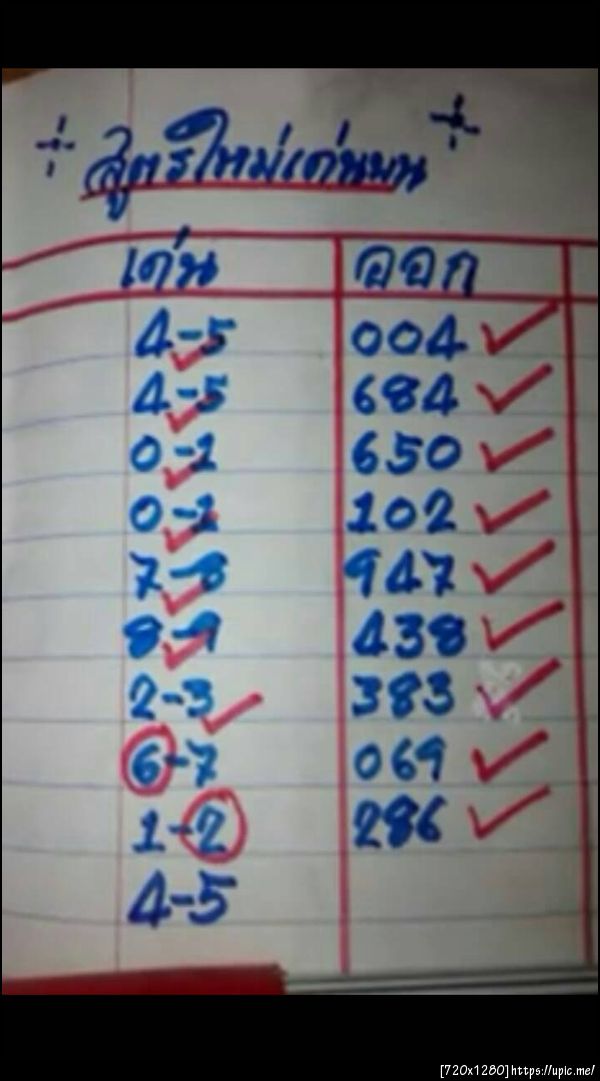 สูตรใหม่เด่นบน
เด่น ออก
4-5 004
4-5 684
0-1 650
0-1 102
7-8 947
8-9 438
2-3 383
6-7 069
1-2 286
4-5
[720x1280]https://upic.me/